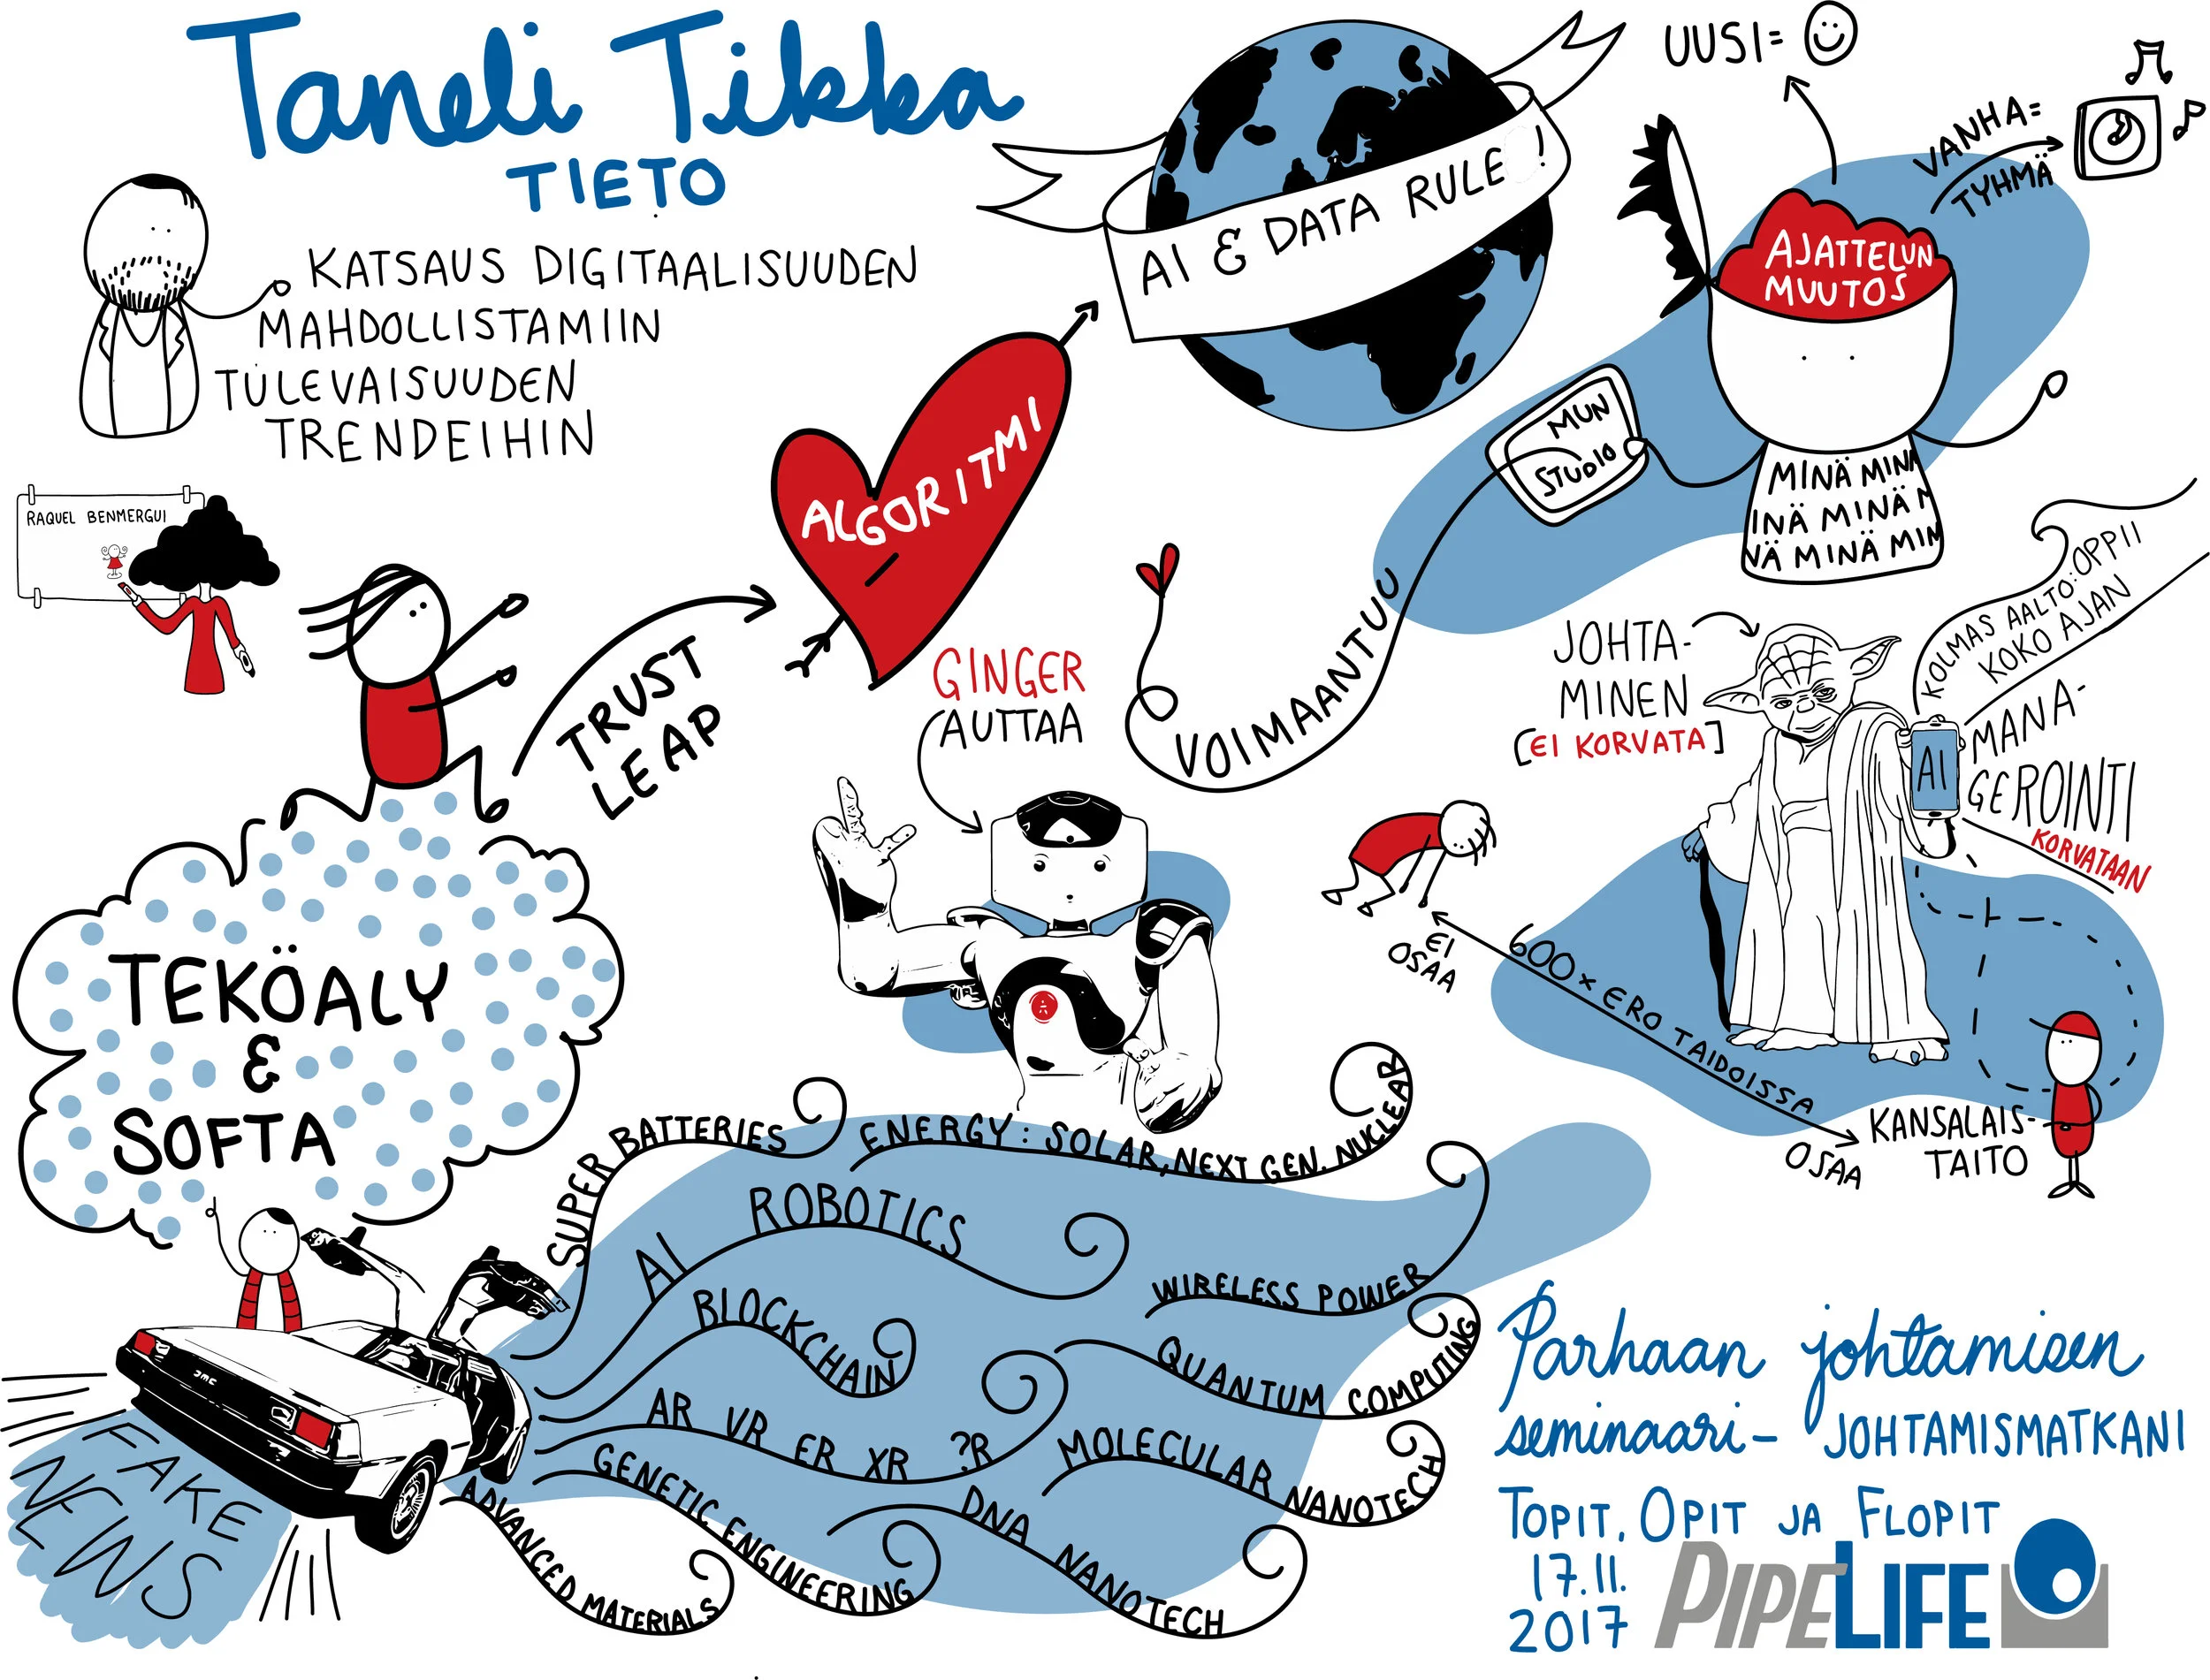 Taneli Tikka
TIETO
KATSAUS DIGITAALISUUDEN
MAHDOLLISTAMIIN
TULEVAISUUDEN
TRENDEIHIN
RAQUEL BENMERGUI
AI & DATA RULE !
UUSI=
VANHA=
TYHMÄ
AJATTELUN
MUUTOS
MUN
STUDIO
MINÄ MINÄ
INÄ MINÄ M
NÄ MINÄ MIN
ALGORITMI
TRUST
LEAP
VOIMAANTUU
GINGER
AUTTAA
JOHTA-
MINEN
[EI KORVATA]
KOLMAS AALTO: OPPII
KOKO AJAN
AI
MANA-
GEROINTI
KORVATAAN
EI
OSAA
600x ERO TAIDOISSA
OSAA
KANSALAIS-
TAITO
TEKÖALY
&
SOFTA
SUPER BATTERIES
ENERGY: SOLAR, NEXT GEN. NUCLEAR
AI ROBOTICS
WIRELESS POWER
BLOCKCHAIN
QUANTUM COMPUTING
AR VR ER XR ?R
MOLECULAR NANOTECH
GENETIC ENGINEERING
DNA NANOTECH
ADVANCED MATERIALS
DMC
FAKE
NEWS
Parhaan johtamisen
seminaari- JOHTAMISMATKANI
TOPIT, OPIT JA FLOPIT
17.11.
2017
PIPELIFE